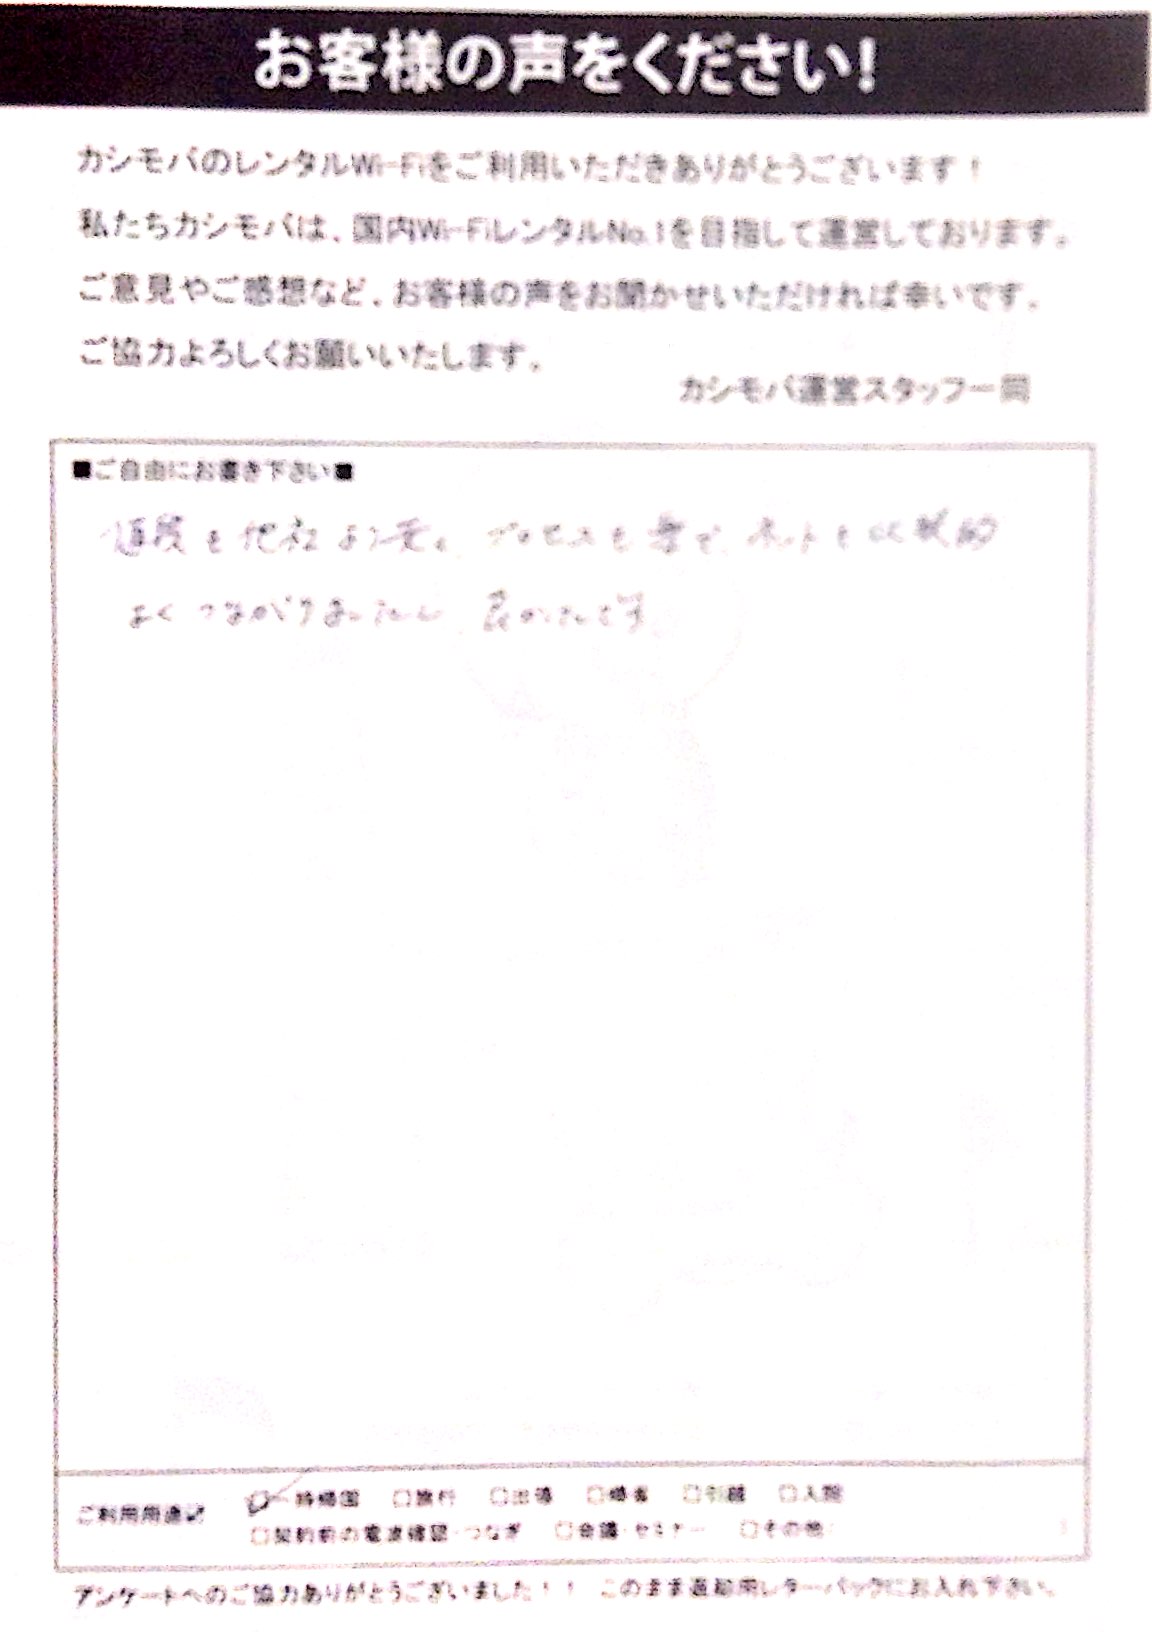 お客様の声をください!
カシモバのレンタルWi-Fiをご利用いただきありがとうございます!
私たちカシモバは、国内Wi-FiレンタルNo.1を目指して運営しております。
ご意見やご感想など、お客様の声をお聞かせいただければ幸いです。
ご協力よろしくお願いいたします。
カシモバ運営スタッフ一同
■ご自由にお書き下さい■
も他社より プロセスも 、ネットも比較的
よくつながりましたし 良かったです
ご利用用途☑
☑一時帰国 □旅行 □出張 □帰省 □引越 □入院
□契約前の電波確認・つなぎ □会議・セミナー □その他
アンケートへのご協力ありがとうございました!! このまま返却用レターパックにお入れ下さい。